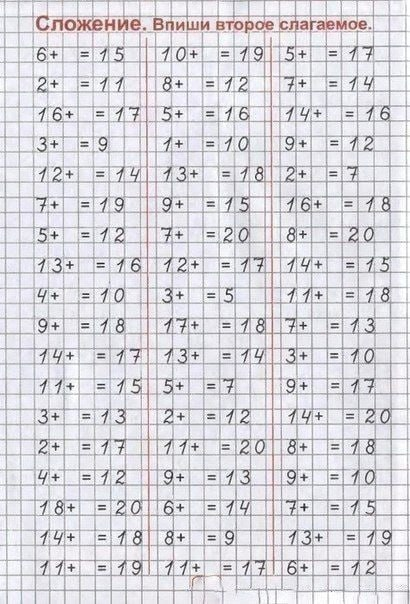 Сложение. Впиши второе слагаемое.
6+ = 15 10+ = 19 5+ = 17
2+ = 11 8+ = 12 7+ = 14
16+ = 17 5+ = 16 14+ = 16
3+ = 9 1+ = 10 9+ = 12
12+ = 14 13+ = 18 2+ = 7
7+ = 19 9+ = 15 16+ = 18
5+ = 12 7+ = 20 8+ = 20
13+ = 16 12+ = 17 14+ = 15
4+ = 10 3+ = 5 11+ = 18
9+ = 18 17+ = 18 7+ = 13
14+ = 17 13+ = 14 3+ = 10
11+ = 15 5+ = 7 9+ = 17
3+ = 13 2+ = 12 14+ = 20
2+ = 17 11+ = 20 8+ = 18
4+ = 12 9+ = 13 9+ = 10
18+ = 20 6+ = 14 7+ = 15
14+ = 18 8+ = 9 13+ = 19
11+ = 19 11+ = 17 6+ = 12